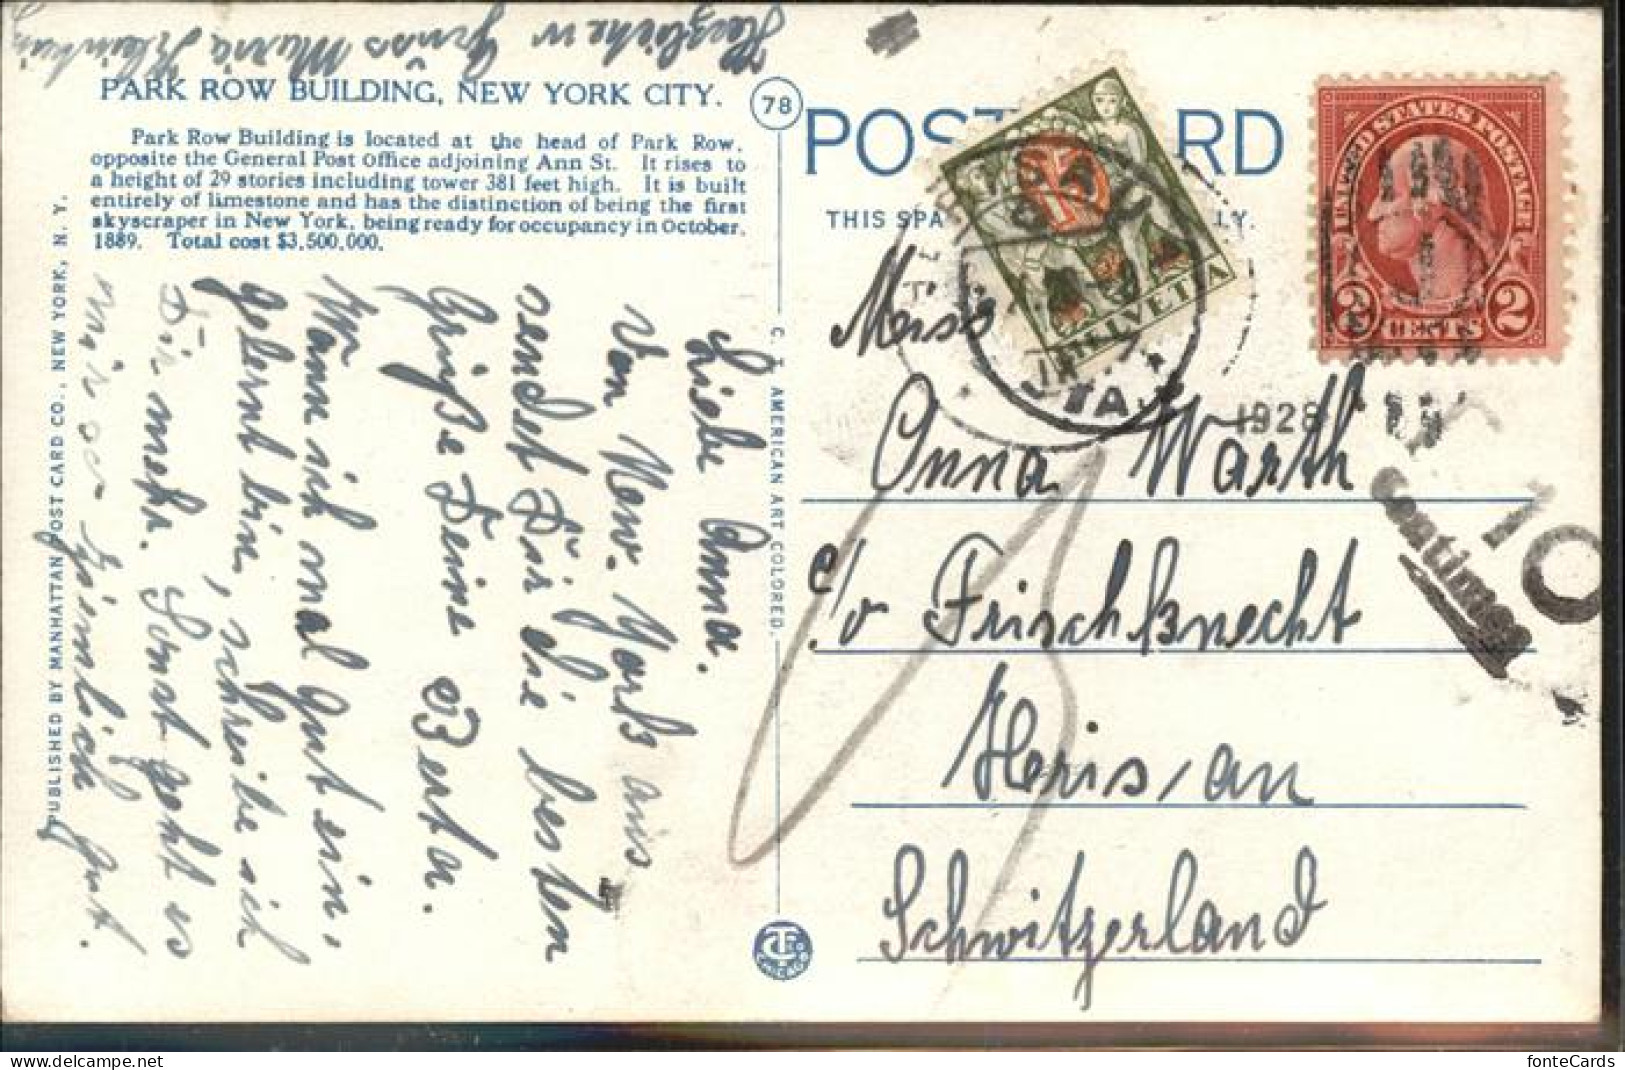 Herzlichen Gruss Maria
PARK ROW BUILDING, NEW YORK CITY.
Park Row Building is located at the head of Park Row,
opposite the General Post Office adjoining Ann St. It rises to
a height of 29 stories including tower 381 feet high. It is built
entirely of limestone and has the distinction of being the first
skyscraper in New York, being ready for occupancy in October,
1889. Total cost $3.500.000.
78
Liebe Anna.
Von New. York aus
sendet Dir die besten
Grüße Deine Berta.
Wann ich mal gut ein,
gelernt bin, schreibe ich
Dir mehr. Sonst geht es
mir so ziemlich gut.
PUBLISHED BY MANHATTAN POST CARD CO., NEW YORK, N. Y.
C. T. AMERICAN ART COLORED.
POST CARD
THIS SPA LY.
HELVETIA
UNITED STATES POSTAGE
2 CENTS 2
1928
10
Centimes
Miss
Anna Warth
c/o Frischknecht
Heris/an
Schwitzerland
fonteCards